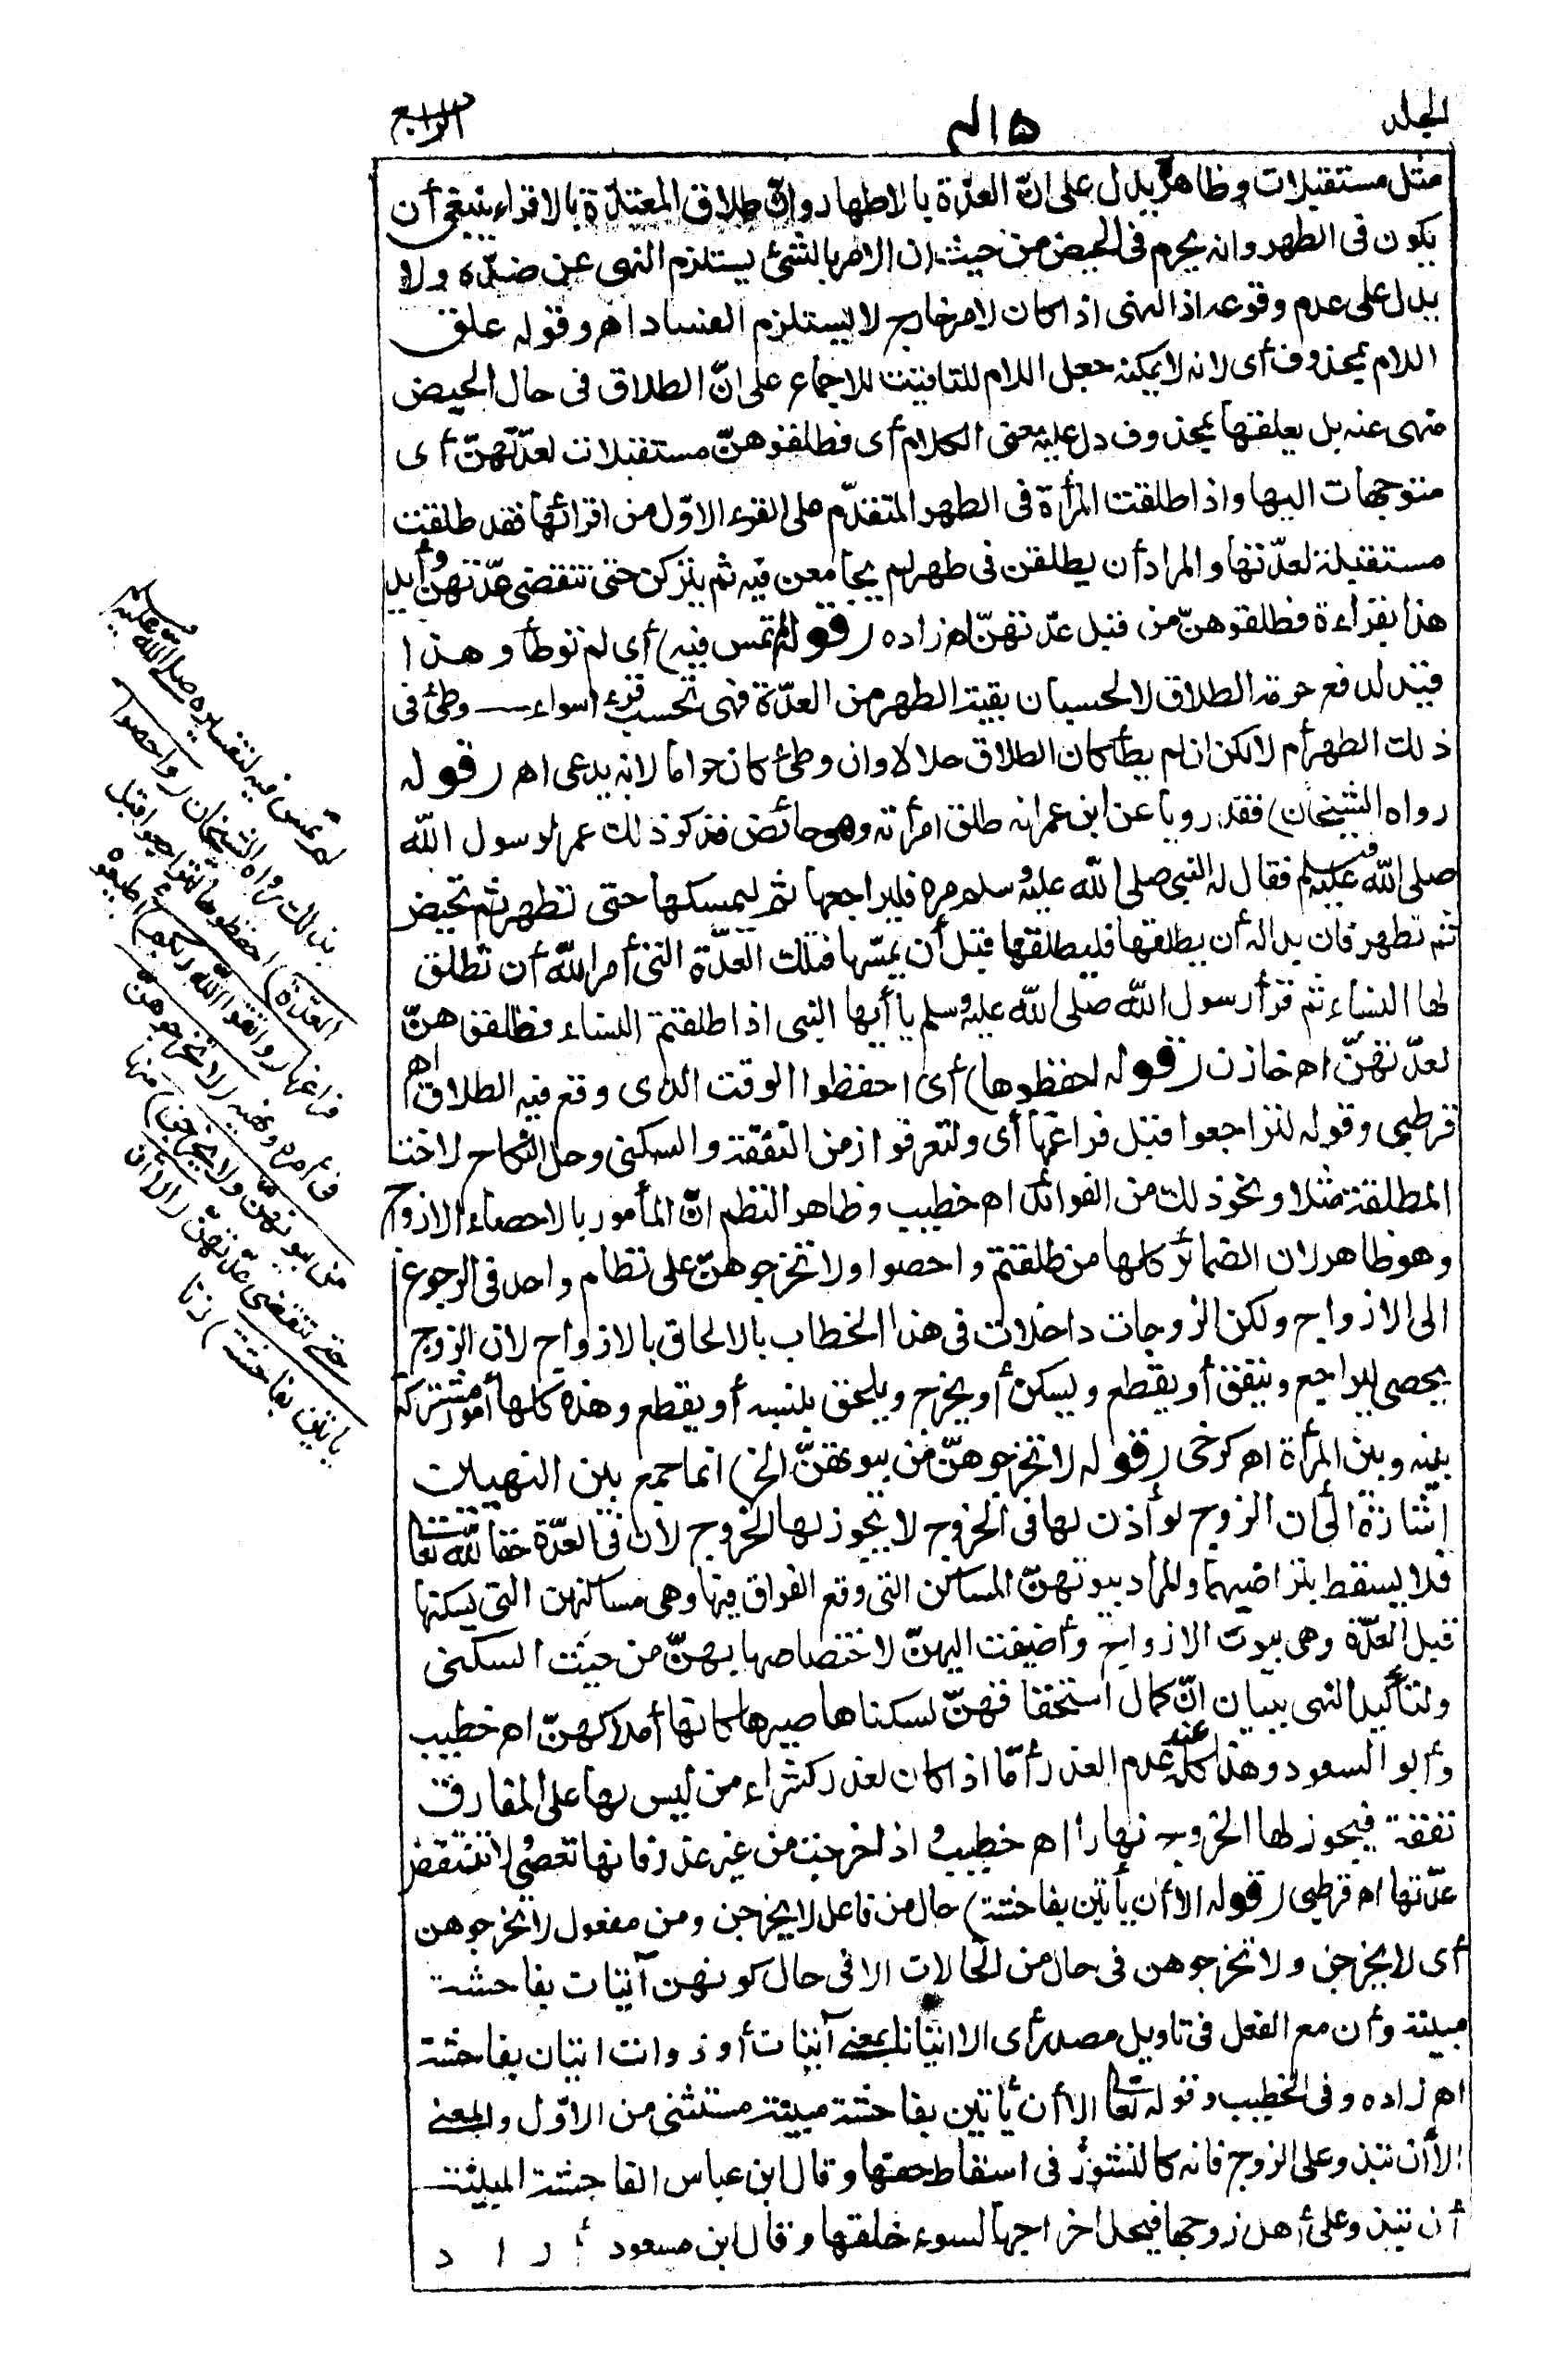 الجلد
٤١٥
الرابع
مثل مستقبلات وظاهره يدل على انّ العدّة بالاطهار وانّ طلاق المعتدّة بالاقراء ينبغى أن
يكون فى الطهر وانه يحرم فى الحيض من حيث ان الامر بالشئ يستلزم النهى عن ضدّه ولا
يدل على عدم وقوعه اذ النهى اذا كان لامر خارج لا يستلزم الفساد اهـ وقوله علق
اللام بمحذوف أى لانه لا يمكنه جعل اللام للتاقيت للاجماع على انّ الطلاق فى حال الحيض
منهى عنه بل يعلقها بمحذوف دل عليه معنى الكلام أى فطلقوهنّ مستقبلات لعدّتهنّ أى
متوجهات اليها واذا طلقت المرأة فى الطهر المتقدّم على القرء الاوّل من اقرائها فقد طلقت
مستقبلة لعدّتها والمراد أن يطلقن فى طهر لم يجامعن فيه ثم يتركن حتى تنقضى عدّتهن وأيد
هذا بقراءة فطلقوهنّ من قبل عدّتهنّ اهـ زاده (قوله لم تمس فيه) أى لم توطأ وهذا
قيد لدفع حرمة الطلاق لا لحسبان بقية الطهر من العدّة فهى تحسب قرء اسواء وطئ فى
ذلك الطهر أم لا لكن ان لم يطأ كان الطلاق حلالا وان وطئ كان حراما لانه بدعى اهـ (قوله
رواه الشيخان) فقد رويا عن ابن عمر انه طلق امرأته وهى حائض فذكر ذلك عمر لرسول الله
صلى الله عليه وسلم فقال له النبى صلى الله عليه وسلم مره فليراجعها ثم ليمسكها حتى تطهر ثم تحيض
ثم تطهر فان بدا له أن يطلقها فليطلقها قبل أن يمسّها فتلك العدّة التى أمر الله أن تطلق
لها النساء ثم قرأ رسول الله صلى الله عليه وسلم يا أيها النبى اذا طلقتم النساء فطلقوهنّ
لعدّتهنّ اهـ خازن (قوله احفظوها) أى احفظوا الوقت الذى وقع فيه الطلاق اهـ
قرطبى وقوله لتراجعوا قبل فراغها أى ولتعرفوا زمن النفقة والسكنى وحل النكاح لاخت
المطلقة مثلا ونحو ذلك من الفوائد اهـ خطيب وظاهر النظم انّ المأمور بالاحصاء الازواج
وهو ظاهر لان الضمائر كلها من طلقتم واحصوا ولا تخرجوهنّ على نظام واحد فى الرجوع
الى الازواج ولكن الزوجات داخلات فى هذا الخطاب بالالحاق بالازواج لان الزوج
يحصى ليراجع وينفق أو يقطع ويسكن أو يخرج ويلحق بنسبه أو يقطع وهذه كلها أمور مشتركة
بينه وبين المرأة اهـ كرخى (قوله لا تخرجوهنّ من بيوتهنّ الخ) انما جمع بين النهيين
اشارة الى أن الزوج لو أذن لها فى الخروج لا يجوز لها الخروج لان فى العدّة حقا لله تعالى
فلا يسقط بتراضيهما والمراد ببيوتهنّ المساكن التى وقع الفراق فيها وهى مساكنهن التى يسكنها
قبل العدّة وهى بيوت الازواج وأضيفت اليهنّ لاختصاصها بهنّ من حيث السكنى
ولتأكيد النهى ببيان انّ كمال استحقاقهنّ لسكناها صيرها كانها أملاكهنّ اهـ خطيب
وأبو السعود وهذا كله عند عدم العذر أمّا اذا كان لعذر كشراء من ليس لها على المفارق
نفقة فيجوز لها الخروج نهارا اهـ خطيب واذا خرجت من غير عذر فانها تعصى ولا تنتقض
عدّتها اهـ قرطبى (قوله الا أن يأتين بفاحشة) حال من فاعل لا يخرجن ومن مفعول لا تخرجوهن
أى لا يخرجن ولا تخرجوهن فى حال من الحالات الا فى حال كونهن آتيات بفاحشة
مبينة وأن مع الفعل فى تاويل مصدر أى الا اتيانا بمعنى آتيات أو ذوات اتيان بفاحشة
اهـ زاده وفى الخطيب وقوله تعالى الا أن يأتين بفاحشة مبينة مستثنى من الاوّل والمعنى
الا أن تبذو على الزوج فانه كالنشوز فى اسقاط حقها وقال ابن عباس الفاحشة المبينة
أن تبذو على أهل زوجها فيحل اخراجها لسوء خلقها وقال ابن مسعود أ ر ا د
لم تمس فيه لتفسيره صلى الله عليه وسلم
بذلك رواه الشيخان (واحصوا
العدّة) احفظوها لتراجعوا قبل
فراغها (واتقوا الله ربكم) اطيعوه
فى أمره ونهيه (لا تخرجوهنّ
من بيوتهنّ ولا يخرجن) منها
حتى تنقضى عدّتهنّ (الا أن
يأتين بفاحشة) زنا